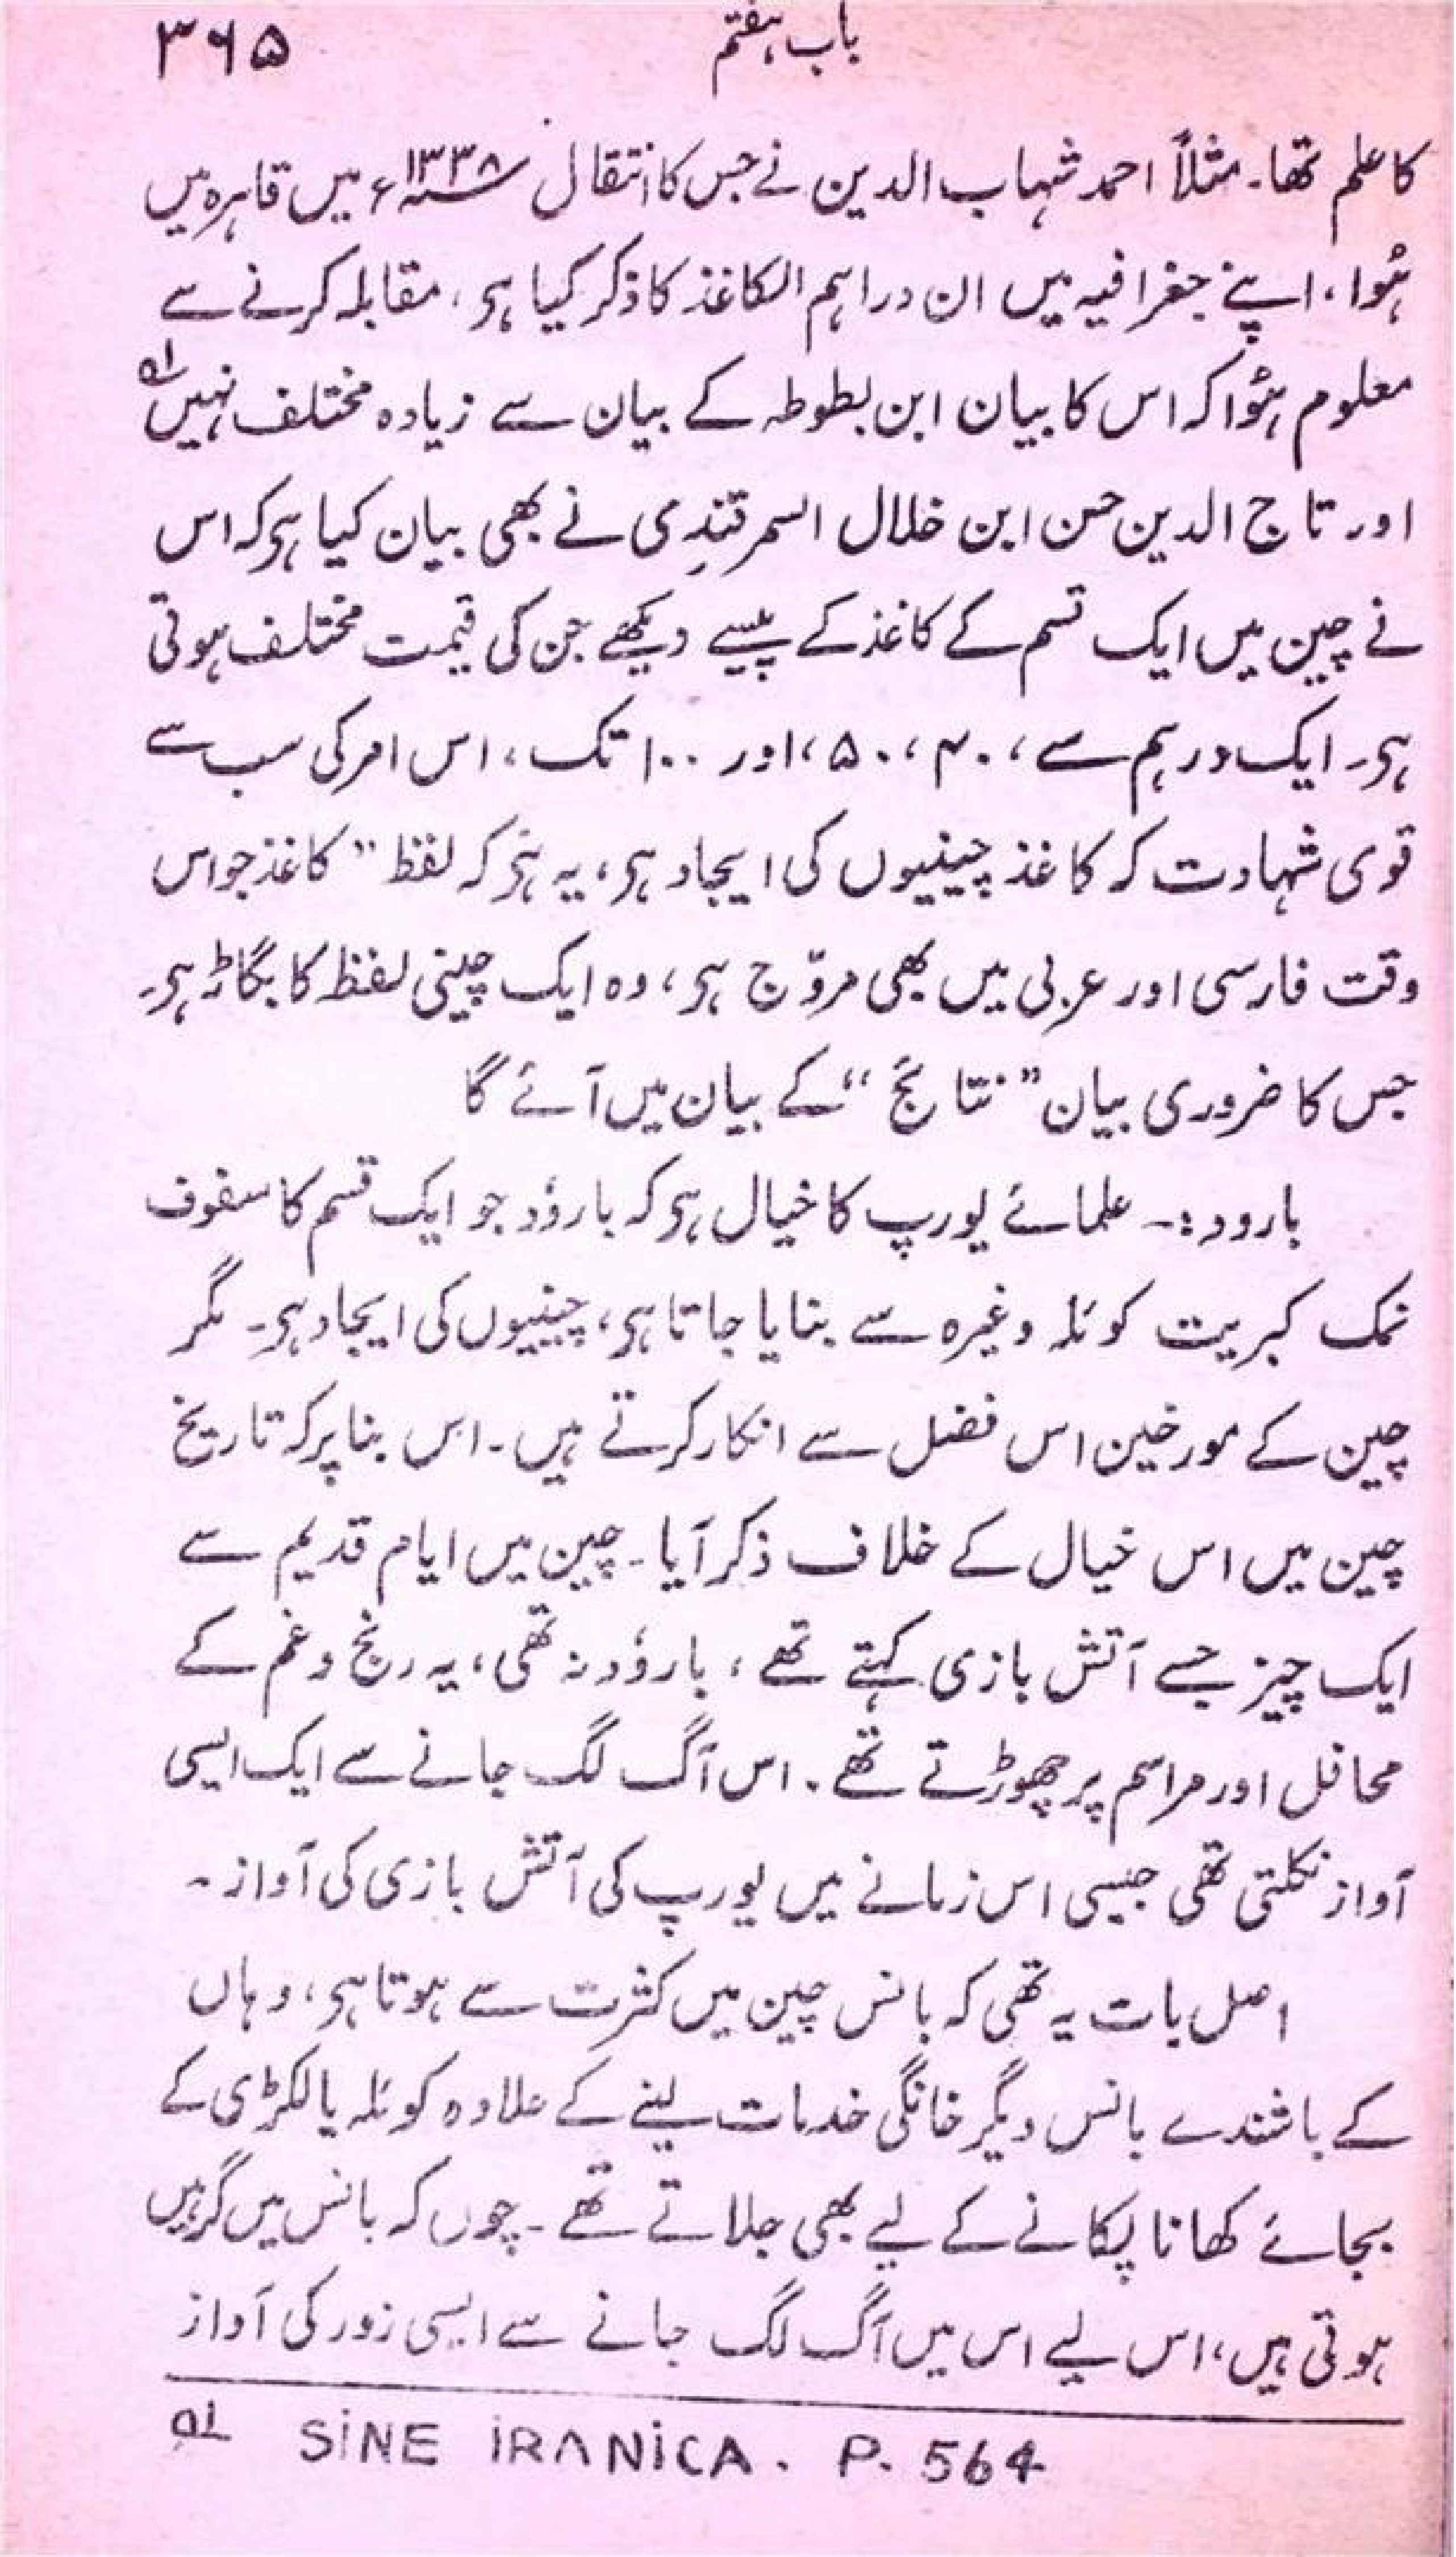 باب ہفتم
۳۶۵
کا علم تھا۔ مثلاً احمد شہاب الدین نے جس کا انتقال ۱۳۳۸ء میں قاہرہ میں
ہُوا، اپنے جغرافیہ میں ان دراہم الکاغذ کا ذکر کیا ہر، مقابلہ کرنے سے
معلوم ہُوا کہ اس کا بیان ابن بطوطہ کے بیان سے زیادہ مختلف نہیں ۱ہ
اور تاج الدین حسن ابن خلال السمرقندی نے بھی بیان کیا ہر کہ اس
نے چین میں ایک قسم کے کاغذ کے پیسے دیکھے جن کی قیمت مختلف ہوتی
ہر۔ ایک درہم سے، ۴۰، ۵۰، اور ۱۰۰ تک، اس امر کی سب سے
قوی شہادت کہ کاغذ چینیوں کی ایجاد ہر، یہ ہر کہ لفظ ”کاغذ جو اس
وقت فارسی اور عربی میں بھی مروّج ہر، وہ ایک چینی لفظ کا بگاڑ ہر۔
جس کا ضروری بیان ”نتائج“ کے بیان میں آئے گا
بارود:۔ علمائے یورپ کا خیال ہر کہ بارؤد جو ایک قسم کا سفوف
نمک کبریت کوئلہ وغیرہ سے بنایا جاتا ہر، چینیوں کی ایجاد ہر۔ مگر
چین کے مورخین اس فضل سے انکار کرتے ہیں۔ اس بنا پر کہ تاریخ
چین میں اس خیال کے خلاف ذکر آیا۔ چین میں ایام قدیم سے
ایک چیز جسے آتش بازی کہتے تھے، بارؤد نہ تھی، یہ رنج و غم کے
محافل اور مراسم پر چھوڑتے تھے۔ اس آگ لگ جانے سے ایک ایسی
آواز نکلتی تھی جیسی اس زمانے میں یورپ کی آتش بازی کی آواز۔
اصل بات یہ تھی کہ بانس چین میں کثرت سے ہوتا ہر، وہاں
کے باشندے بانس دیگر خانگی خدمات لینے کے علاوہ کوئلہ یا لکڑی کے
بجائے کھانا پکانے کے لیے بھی جلاتے تھے۔ چوں کہ بانس میں گرہیں
ہوتی ہیں، اس لیے اس میں آگ لگ جانے سے ایسی زور کی آواز
۱ہ SINE IRANICA. P. 564